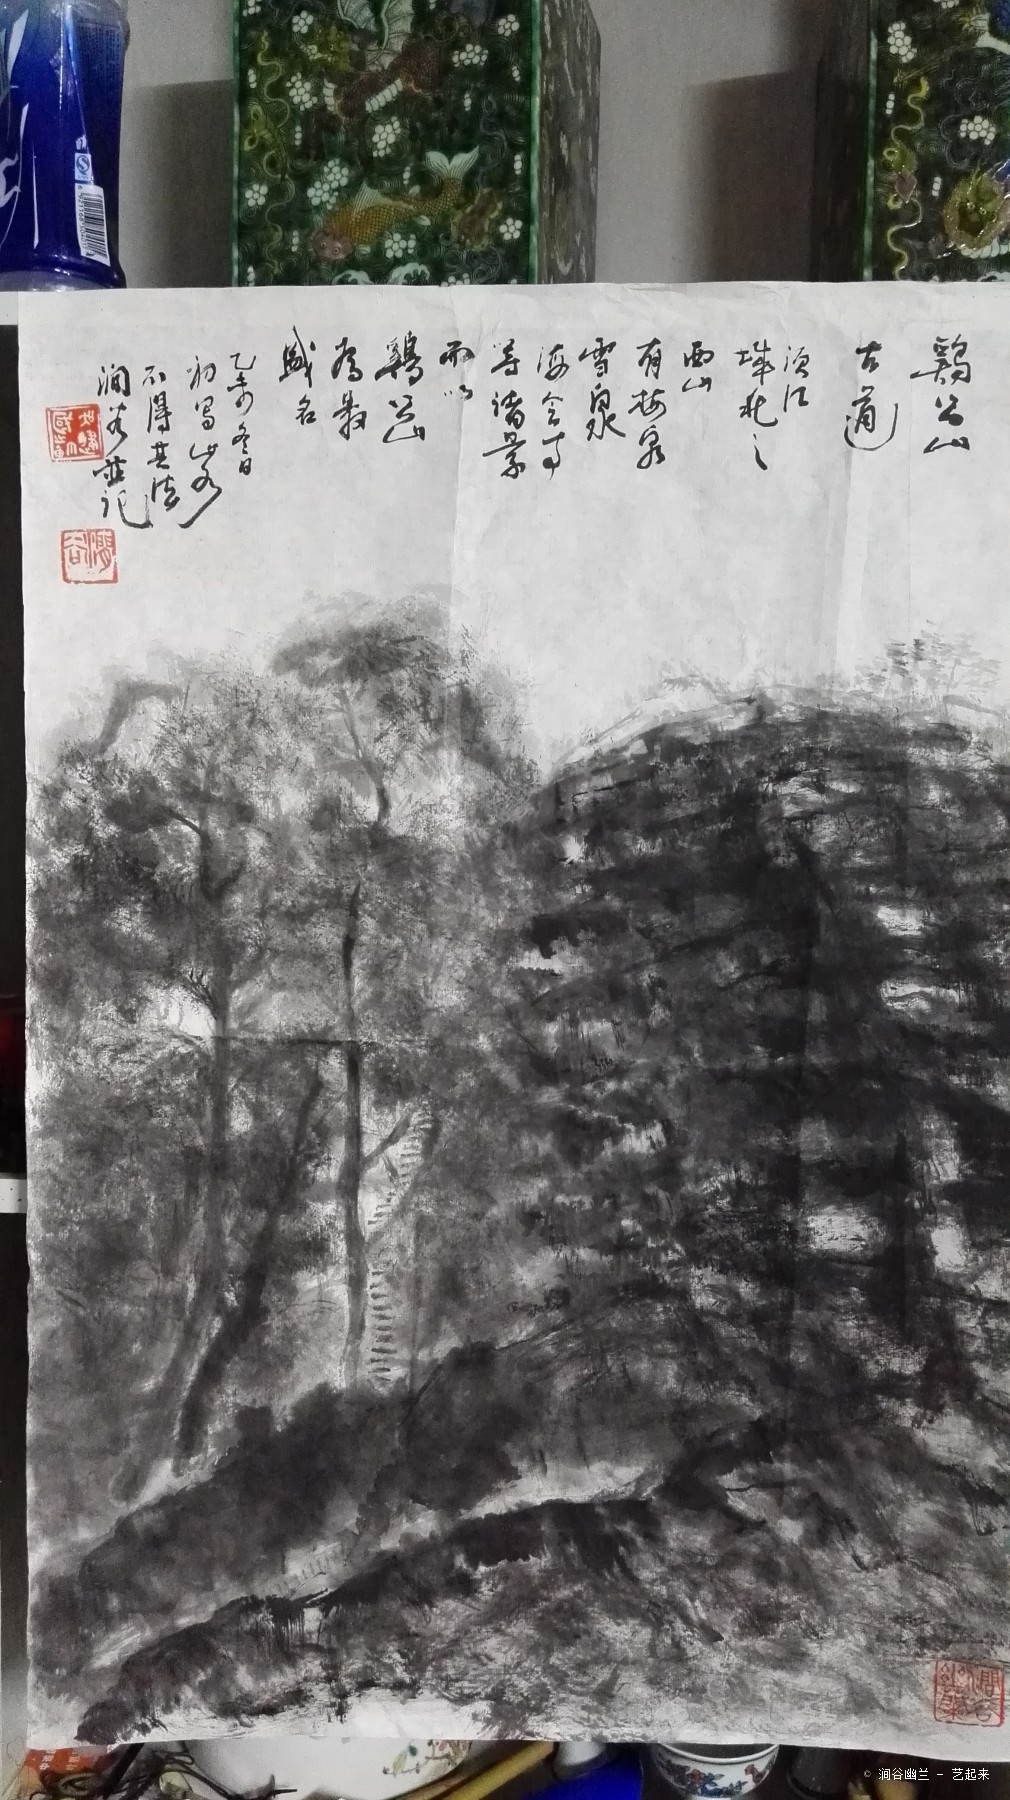 鷄公山
古道
浈江
城北之
西山
有梅泉
雪泉
海会寺
等諸景
而以
鷄公山
為最
盛名
乙未冬日
初写山水
不得其法
澗谷並记
澗谷
© 涧谷幽兰 - 艺起来